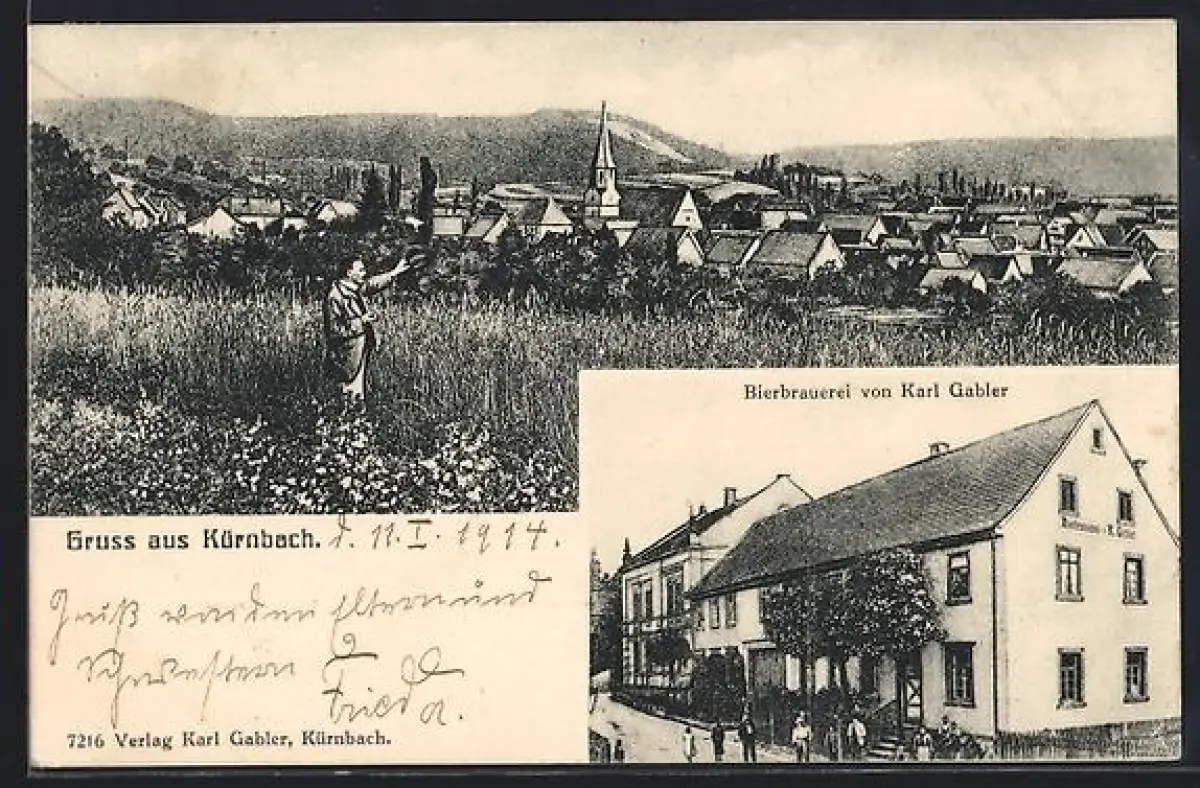 Bierbrauerei von Karl Gabler
Gruss aus Kürnbach. d. 11. I. 1914.
Gruß von den Eltern und
Schwestern
Frieda.
7216 Verlag Karl Gabler, Kürnbach.